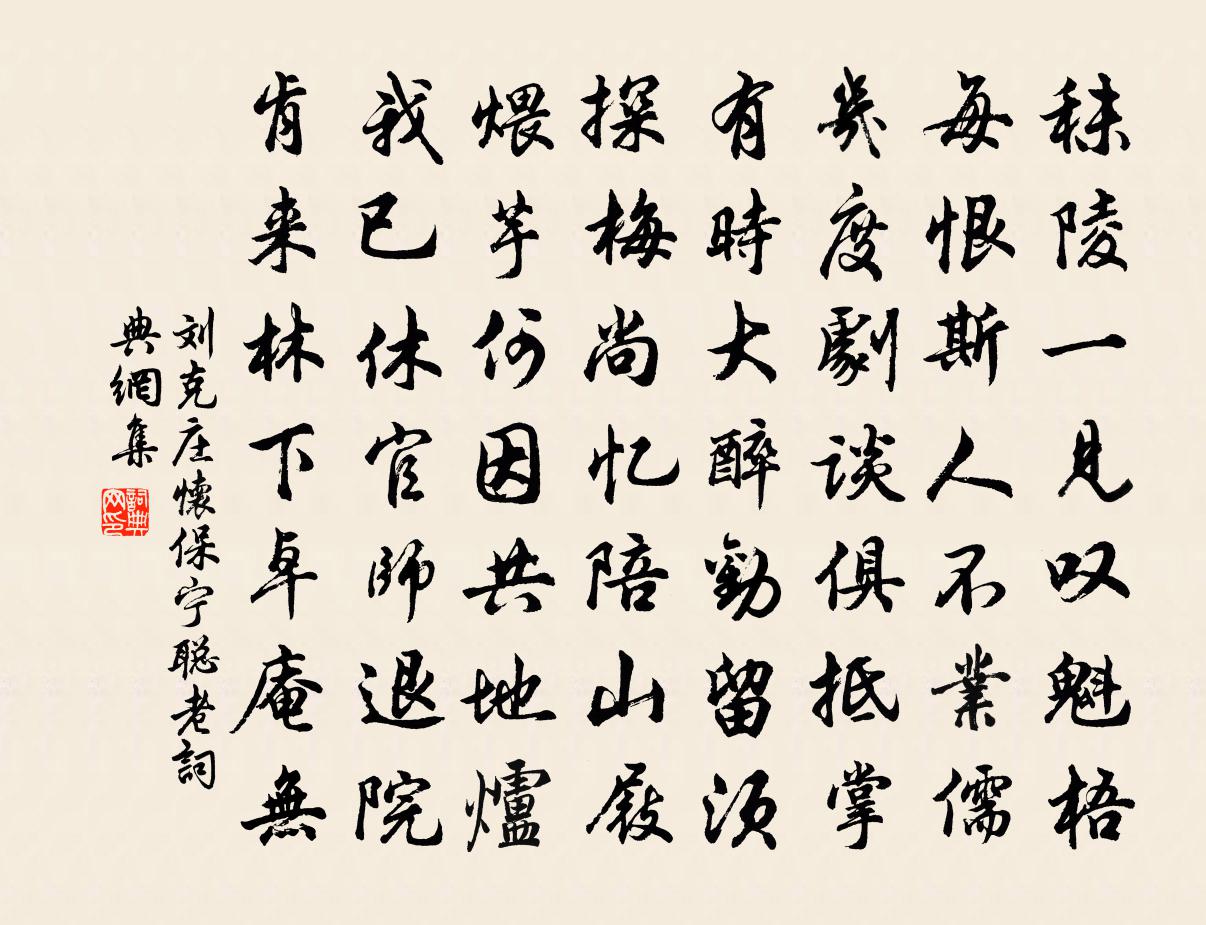 秣陵一見叹魁梧
每恨斯人不業儒
幾度劇談俱抵掌
有時大醉勸留須
探梅尚忆陪山屐
煨芋何因共地爐
我已休官師退院
肯来林下卓庵無
刘克庄懷保宁聪老詞
典網集
詞典
网印